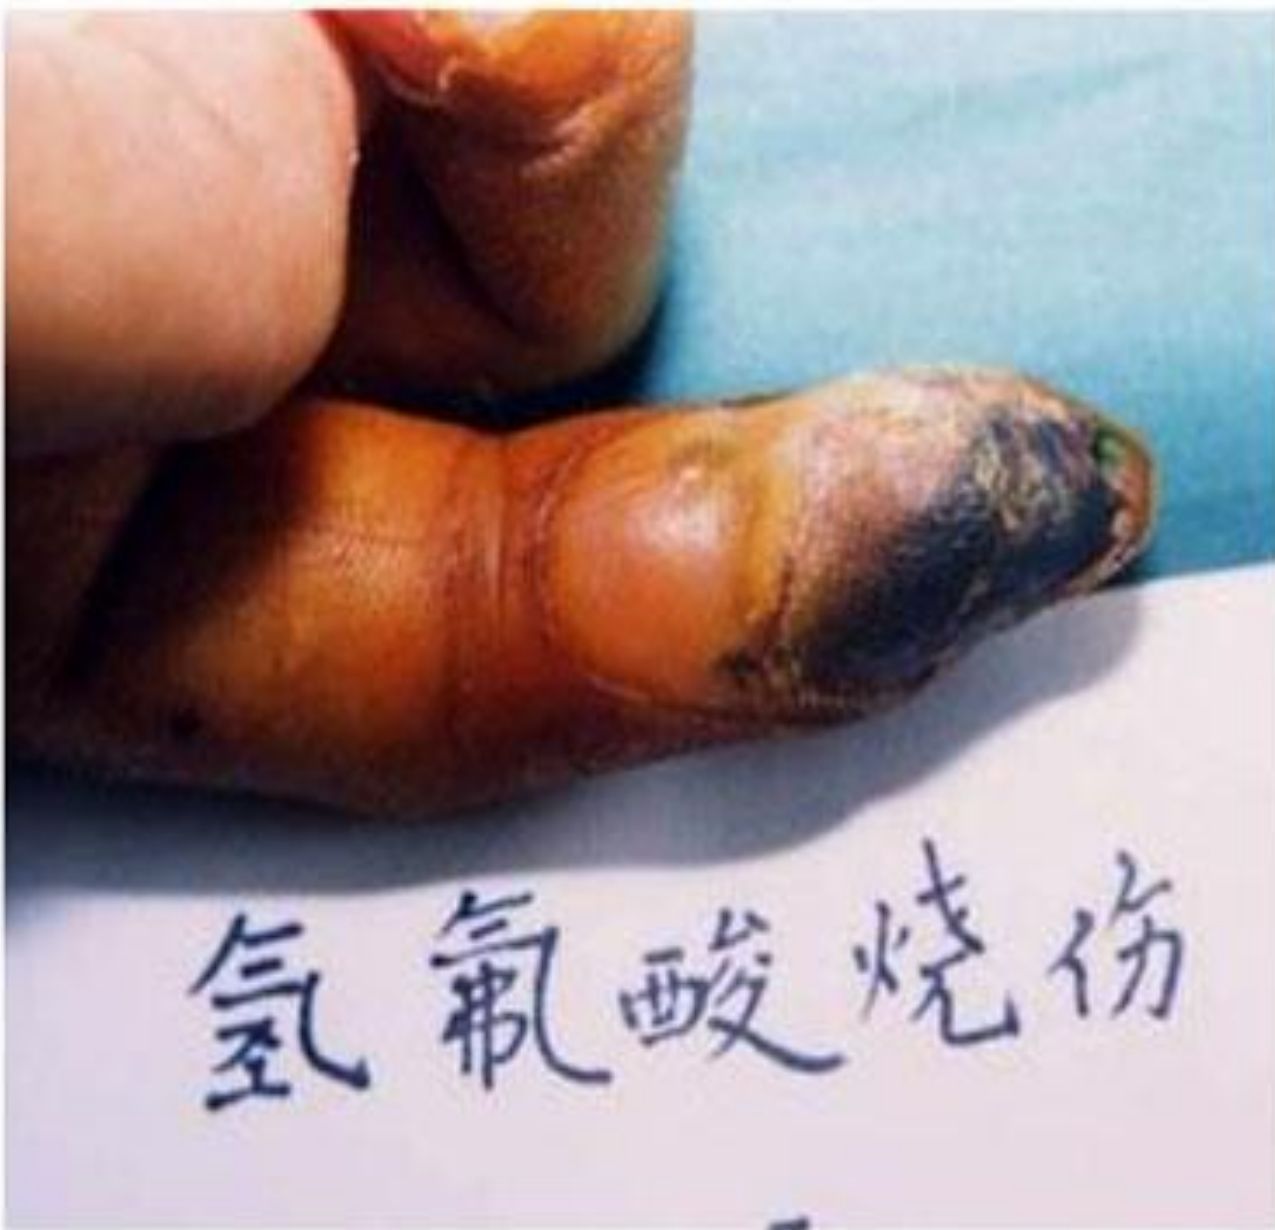 氢氟酸烧伤